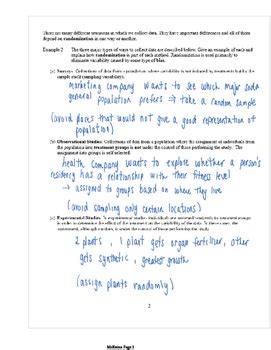 There are many different scenarios in which we collect data. They have important differences and all of them
depend on randomization in one way or another.
Example 2 The three major types of ways to collect data are described below. Give an example of each and
explain how randomization is part of each method. Randomization is used primarily to
eliminate variability caused by some type of bias.
(a) Surveys: Collections of data from a population where variability is not induced by treatments but by the
sample itself (sampling variability).
marketing company wants to see which major soda
general population prefers → take a random sample
(avoid places that would not give a good representation of
population)
(b) Observational Studies: Collections of data from a population where the assignment of individuals from
the population into treatment groups is not under the control of those performing the study. The
assignment into groups is self selected.
health company wants to explore whether a person's
residency has a relationship with their fitness level
→ assigned to groups based on where they
live
(avoid sampling only certain locations)
(c) Experimental Studies: In experimental studies, individuals are assigned randomly to treatment groups
in order to determine the effect of the treatment on the variability of the data. In these cases, the
assignment, although random, is under the control of those performing the study.
2 plants, 1 plant gets organ fertilizer, other
gets synthetic, greatest growth
(assign plants randomly)
2
McKenna Page 1